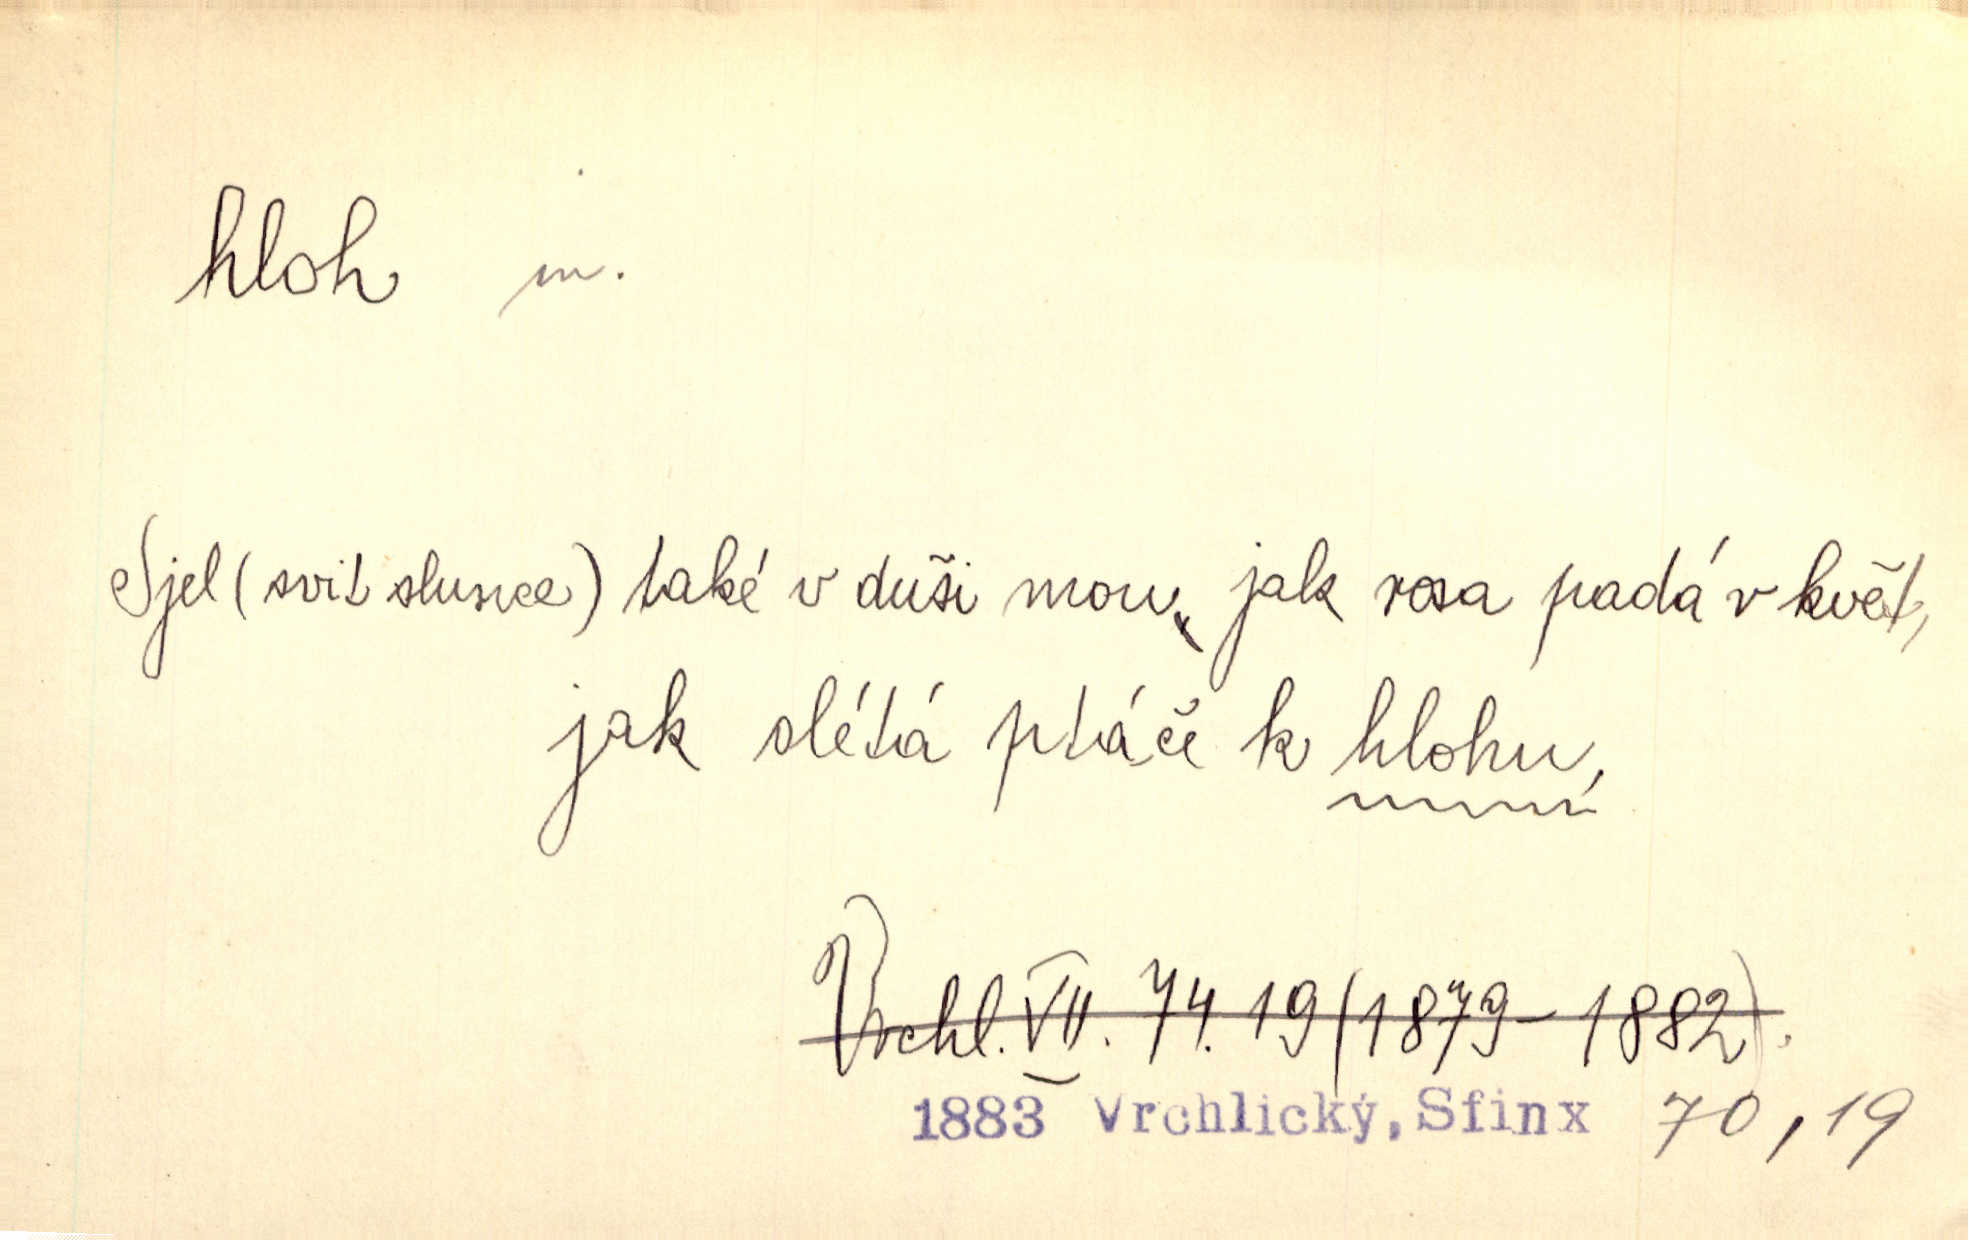 hloh m.
Sjel (svit slunce) také v duši mou, jak rosa padá v květ,
jak slétá ptáče k hlohu,
Vrchl. VII. 74. 19 (1879-1882).
1883 Vrchlický, Sfinx 70, 19